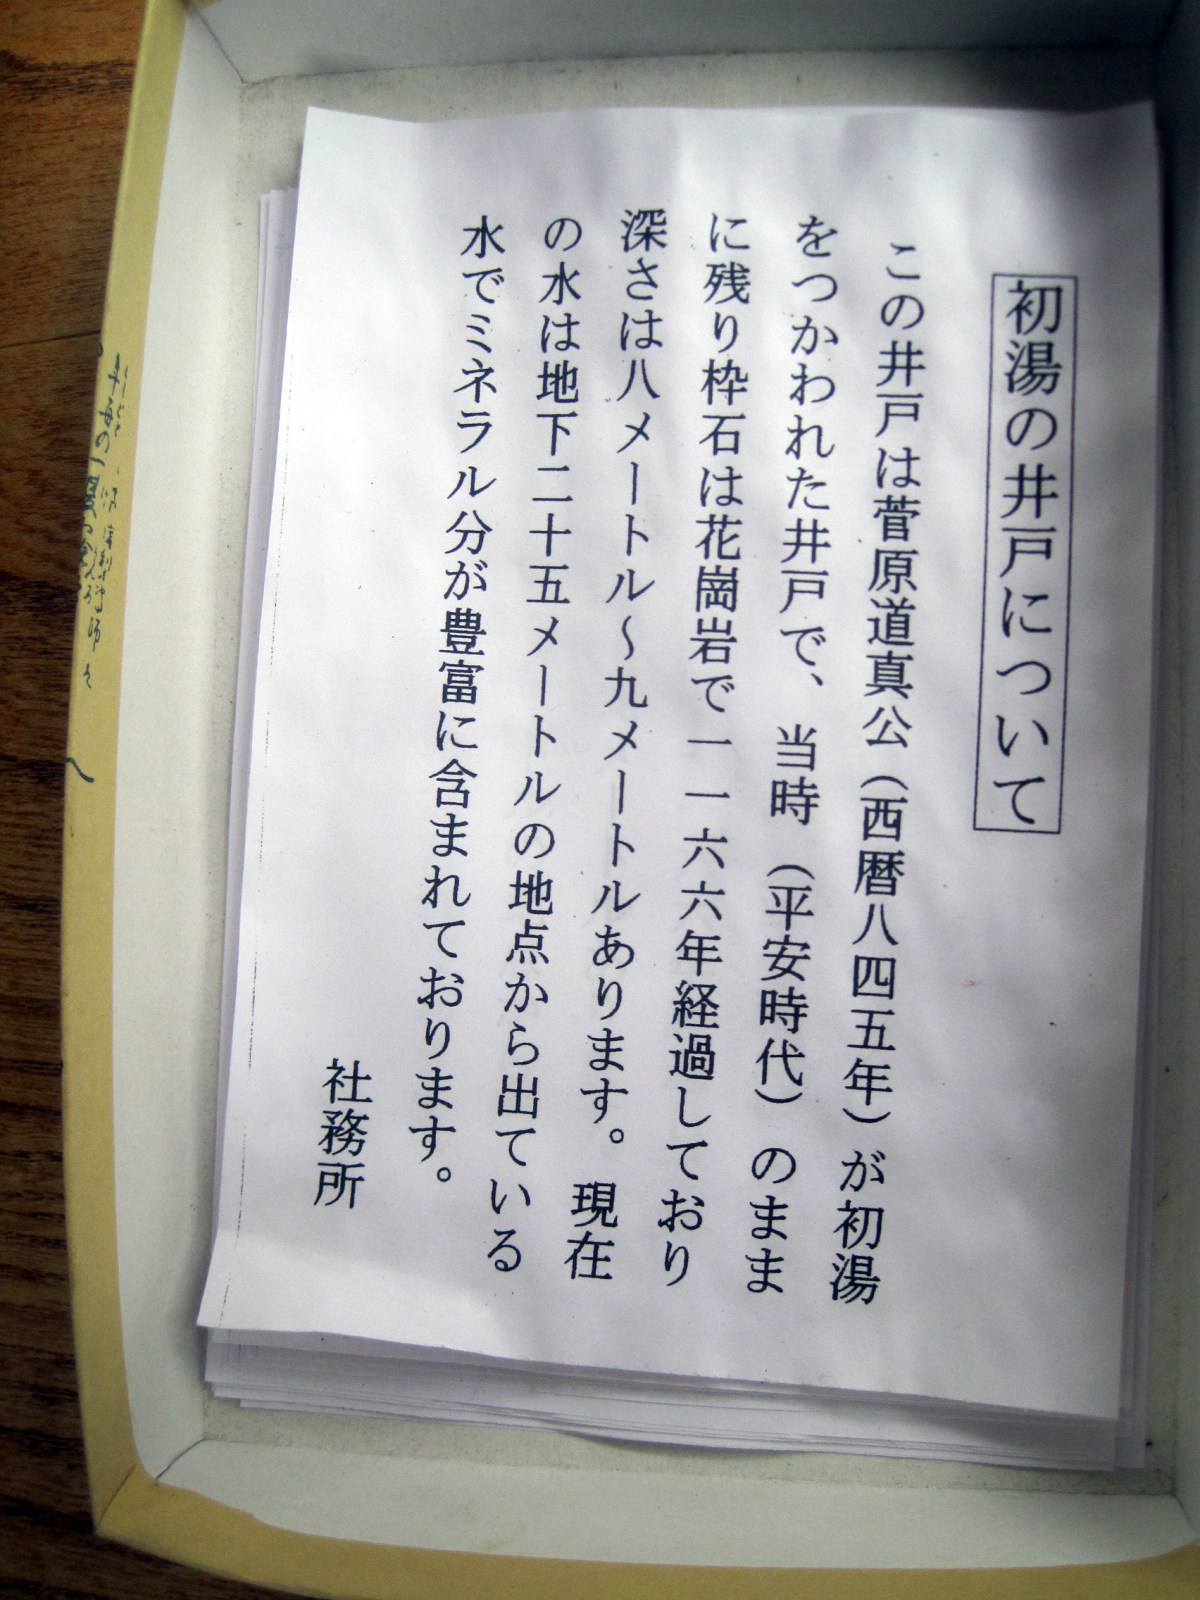 初湯の井戸について
この井戸は菅原道真公（西暦八四五年）が初湯
をつかわれた井戸で、当時（平安時代）のまま
に残り枠石は花崗岩で一一六六年経過しており
深さは八メートル～九メートルあります。現在
の水は地下二十五メートルの地点から出ている
水でミネラル分が豊富に含まれております。
社務所